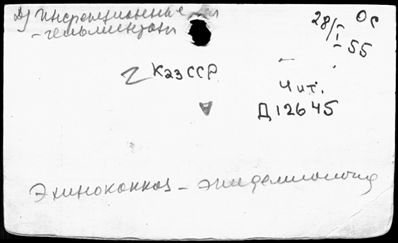 д) Инфекционные
- гельминтозы
28/I
-55
Ос
2 КазССР
Чит.
Д12645
Эхинококкоз – эпидемиология